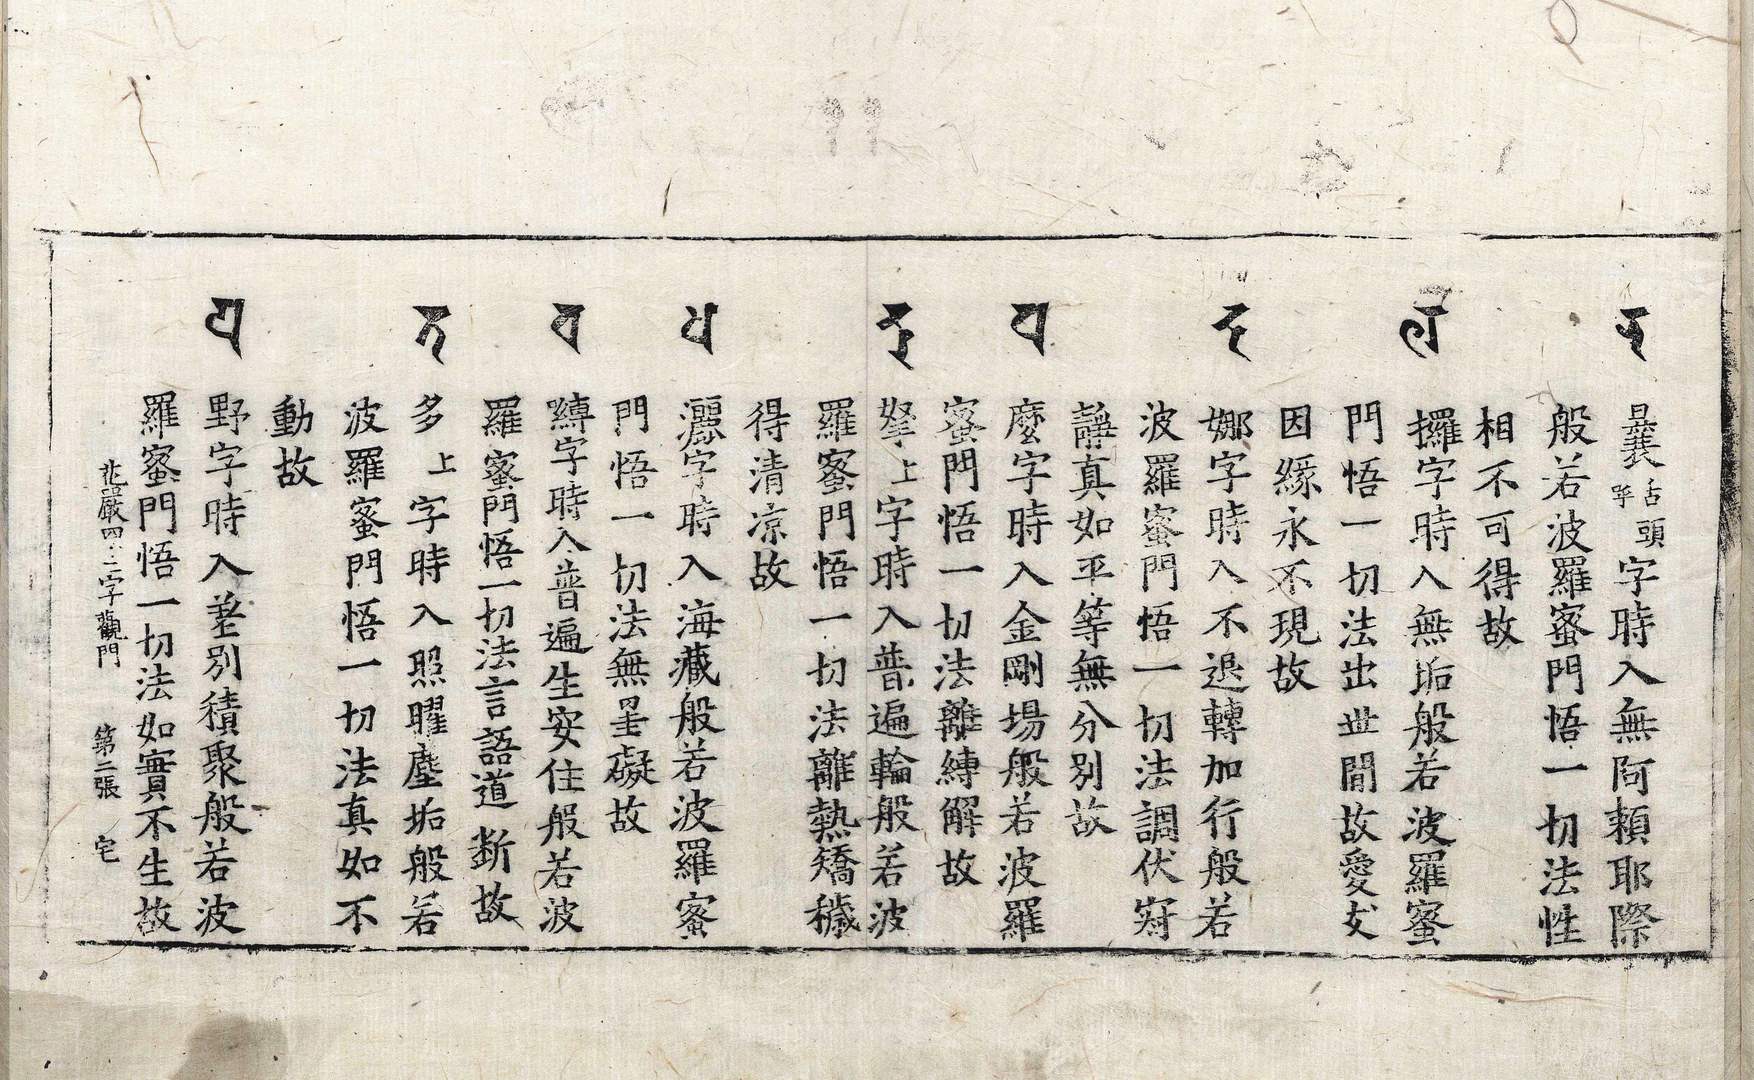 𑖡 曩舌頭呼字時入無阿賴耶際
般若波羅蜜門悟一切法性
相不可得故
𑖩 攞字時入無垢般若波羅蜜
門悟一切法出世間故愛支
因緣永不現故
𑖟 娜字時入不退轉加行般若
波羅蜜門悟一切法調伏寂
靜真如平等無分別故
𑖤 麼字時入金剛場般若波羅
蜜門悟一切法離縛解故
𑖚 拏上字時入普遍輪般若波
羅蜜門悟一切法離熱矯穢
得清凉故
𑖬 灑字時入海藏般若波羅蜜
門悟一切法無罣礙故
𑖪 嚩字時入普遍生安住般若波
羅蜜門悟一切法言語道斷故
𑖝 多上字時入照曜塵垢般若
波羅蜜門悟一切法真如不
動故
𑖧 野字時入差別積聚般若波
羅蜜門悟一切法如實不生故
花嚴四十二字觀門 第二張 宅